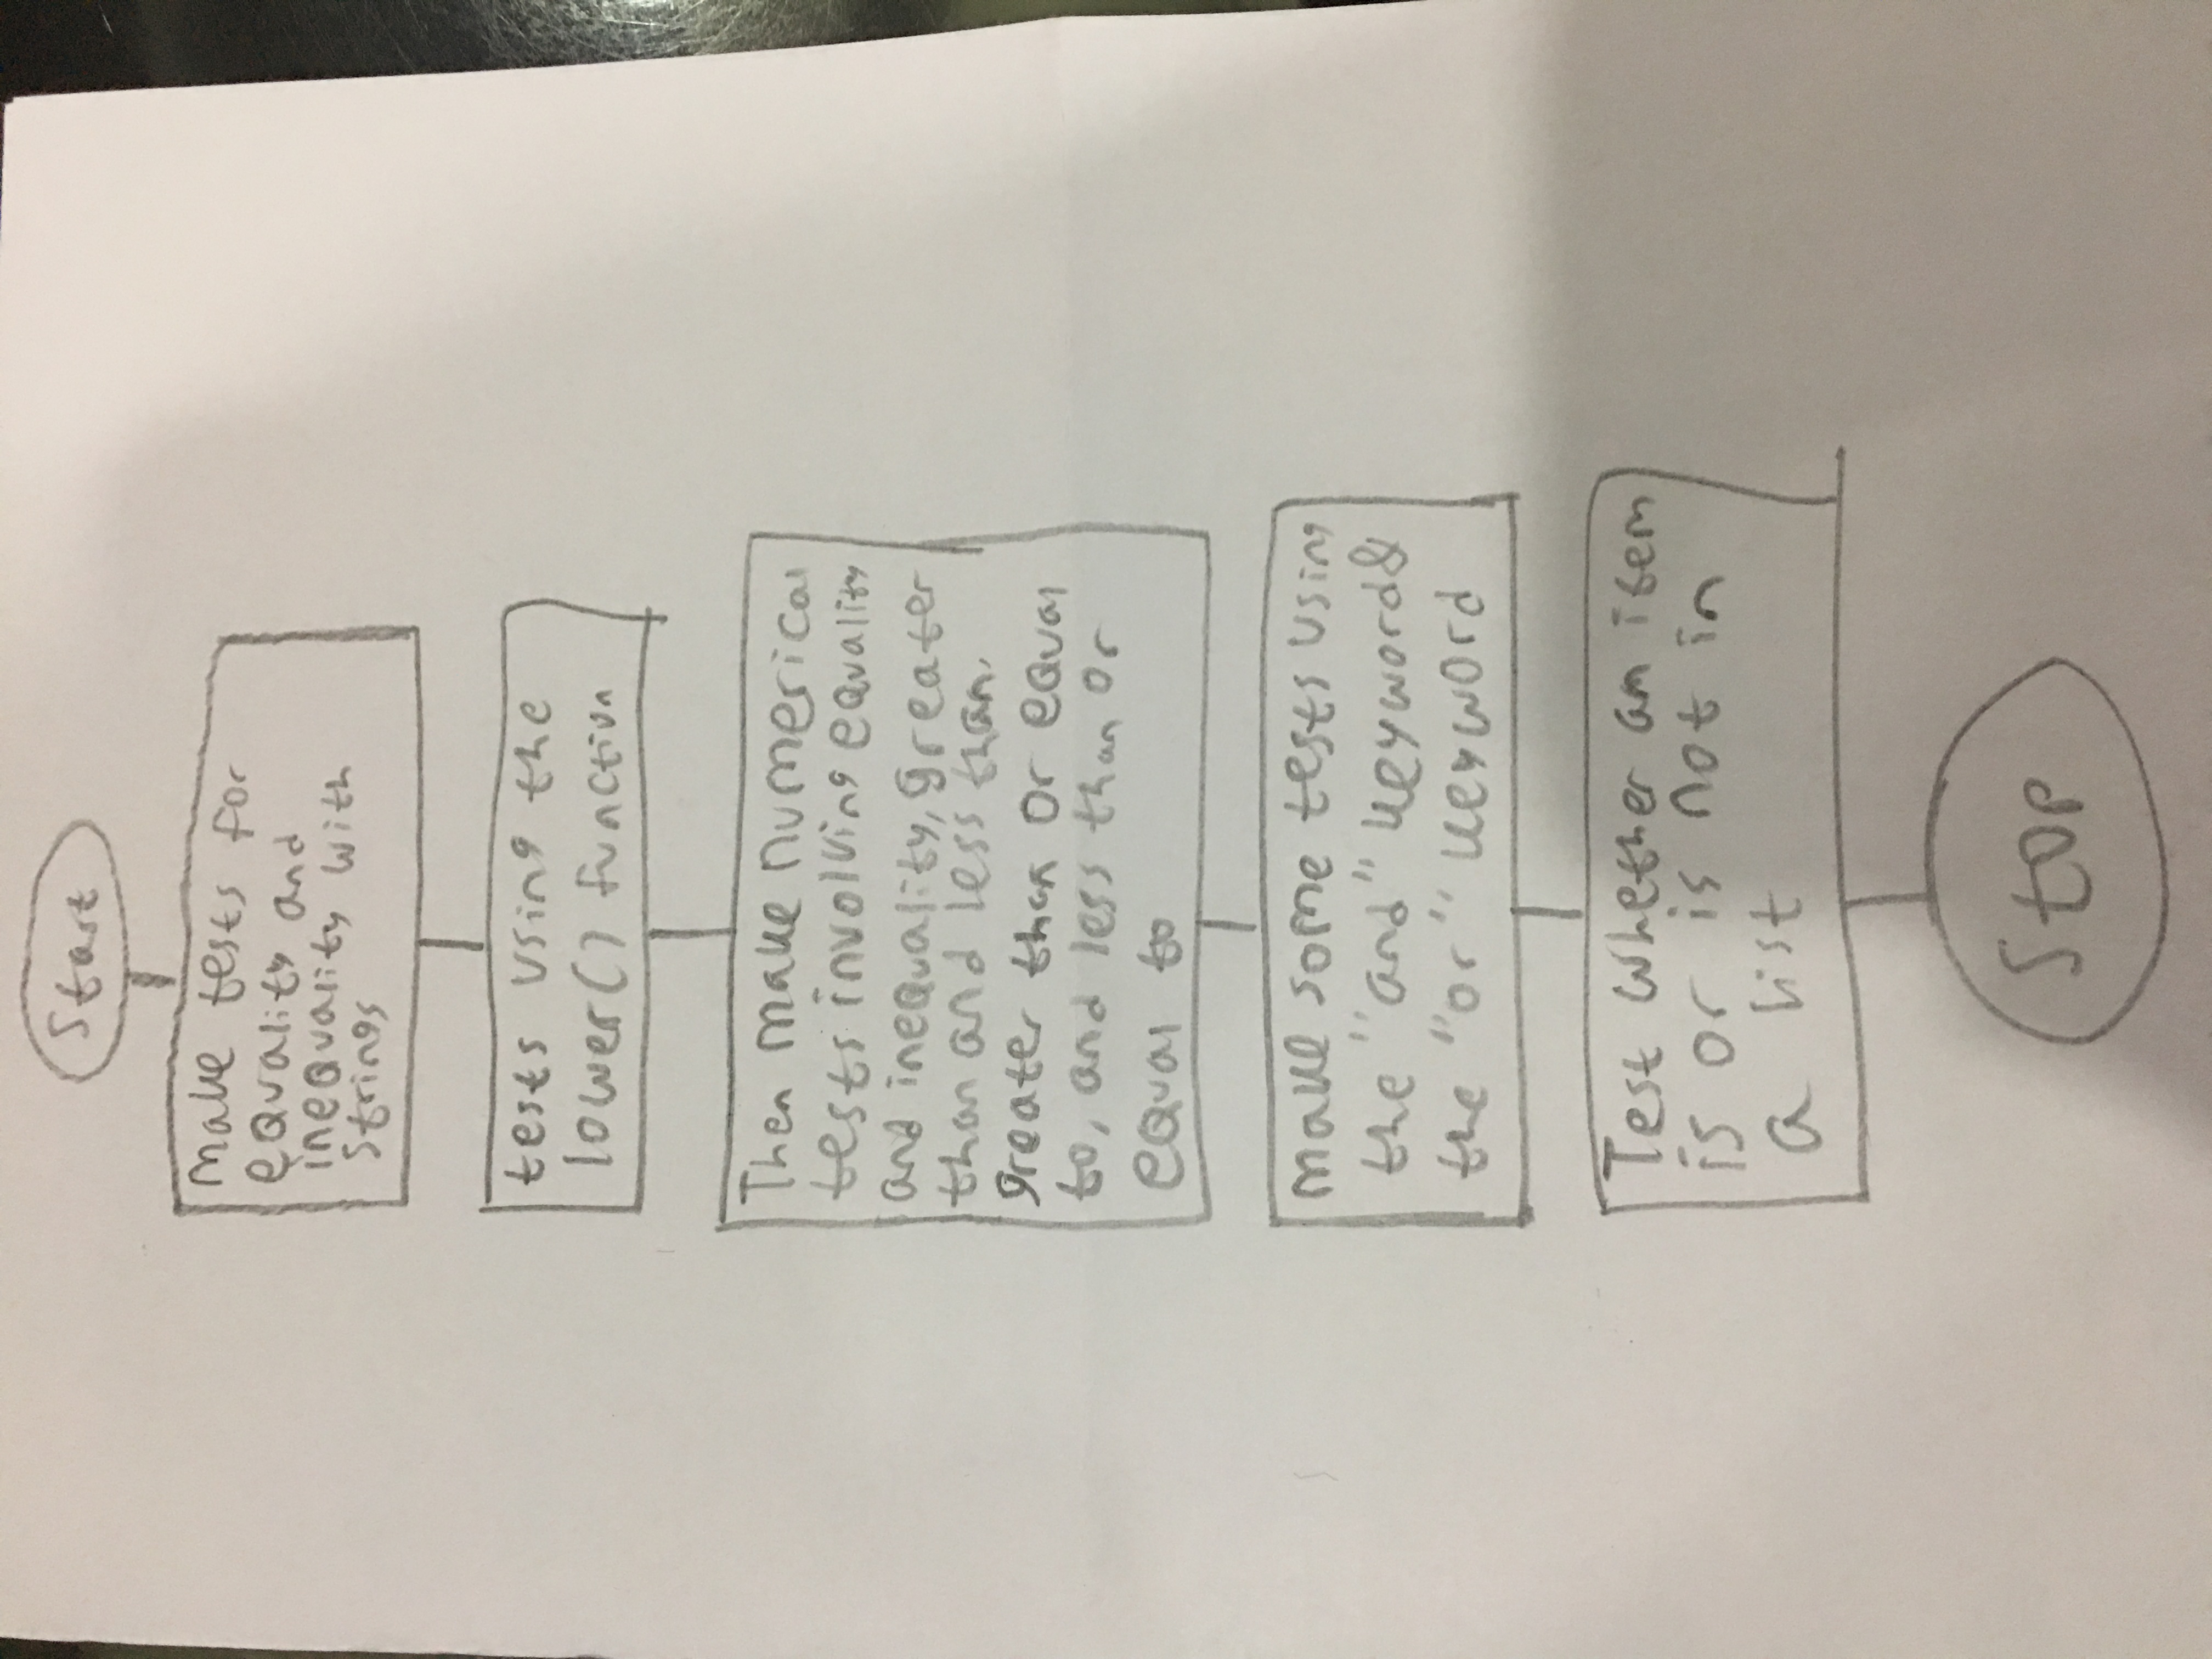 Start
Make tests for
equality and
inequality with
Strings
tests using the
lower() function
Then make numerical
tests involving equality
and inequality, greater
than and less than,
greater than or equal
to, and less than or
equal to
make some tests using
the "and" keyword&
the "or" keyword
Test whether an item
is or is not in
a list
Stop